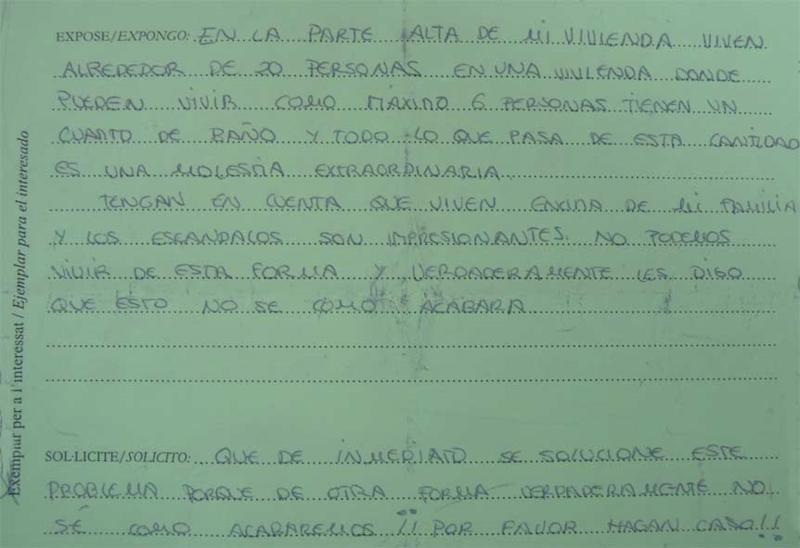 EXPOSE/EXPONGO: EN LA PARTE ALTA DE MI VIVIENDA VIVEN
ALREDEDOR DE 20 PERSONAS EN UNA VIVIENDA DONDE
PUEDEN VIVIR COMO MÁXIMO 6 PERSONAS TIENEN UN
CUARTO DE BAÑO Y TODO LO QUE PASA DE ESTA CANTIDAD
ES UNA MOLESTIA EXTRAORDINARIA
TENGAN EN CUENTA QUE VIVEN ENCIMA DE MI FAMILIA
Y LOS ESCANDALOS SON IMPRESIONANTES. NO PODEMOS
VIVIR DE ESTA FORMA Y VERDADERAMENTE LES DIGO
QUE ESTO NO SE COMO ACABARA
SOL·LICITE/SOLICITO: QUE DE INMEDIATO SE SOLUCIONE ESTE
PROBLEMA PORQUE DE OTRA FORMA VERDADERAMENTE NO
SÉ COMO ACABAREMOS ¡¡ POR FAVOR HAGAN CASO!!
Exemplar per a l'interessat / Ejemplar para el interesado